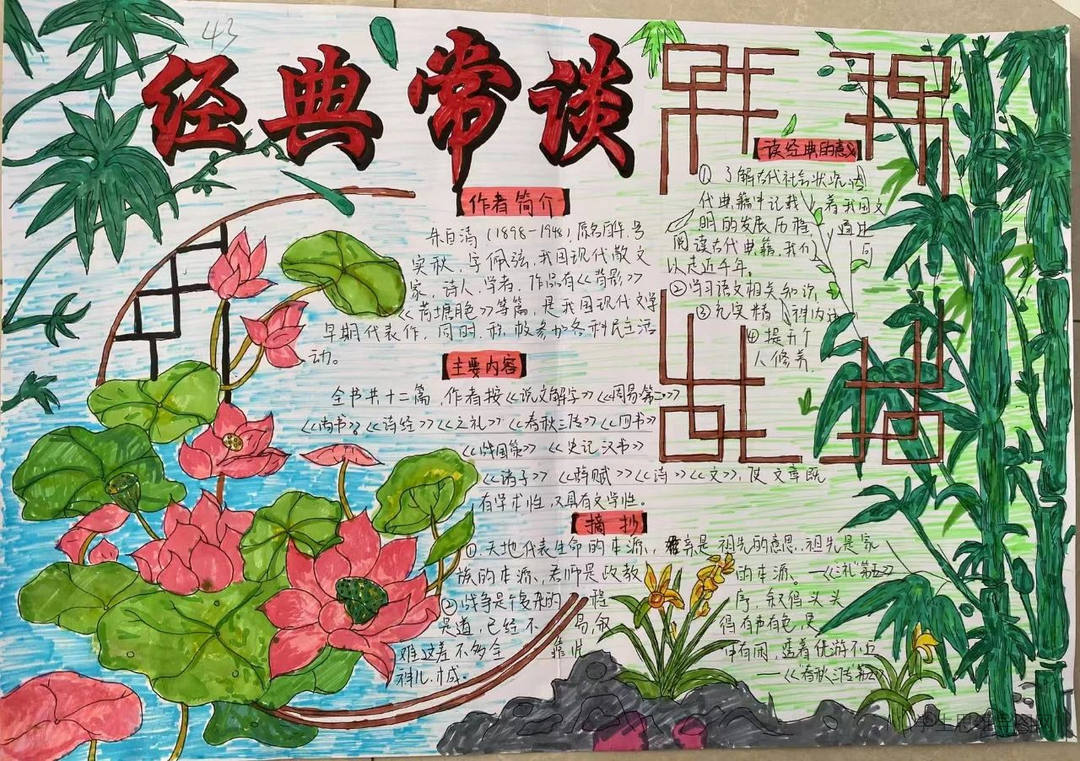 43
经典常谈
作者简介
朱自清(1898-1948),原名自华,号
实秋,字佩弦,我国现代散文
家,诗人,学者,作品有《背影》
《荷塘月色》等篇,是我国现代文学
早期代表作,同时,积极参加各种民主活
动。
主要内容
全书共十二篇,作者按《说文解字》《周易第二》
《尚书》《诗经》《三礼》《春秋三传》《四书》
《战国策》《史记汉书》
《诸子》《辞赋》《诗》《文》,使文章既
有学术性,又具有文学性。
读经典的意义
①了解古代社会状况,古
代典籍中记载着我国文
明的发展历程,通过
阅读古代典籍,我们可
以走近千年。
②学习语文相关知识,
③充实精神内涵
④提升个
人修养
摘抄
①天地代表生命的本源,亲是祖先的意思,祖先是家
族的本源,君师是政教的本源。——《三礼第五》
②战争是复杂的程序,叙得头头
是道,已经不易,叙得有声有色,更
难这差不多全靠
——《春秋三传第六》